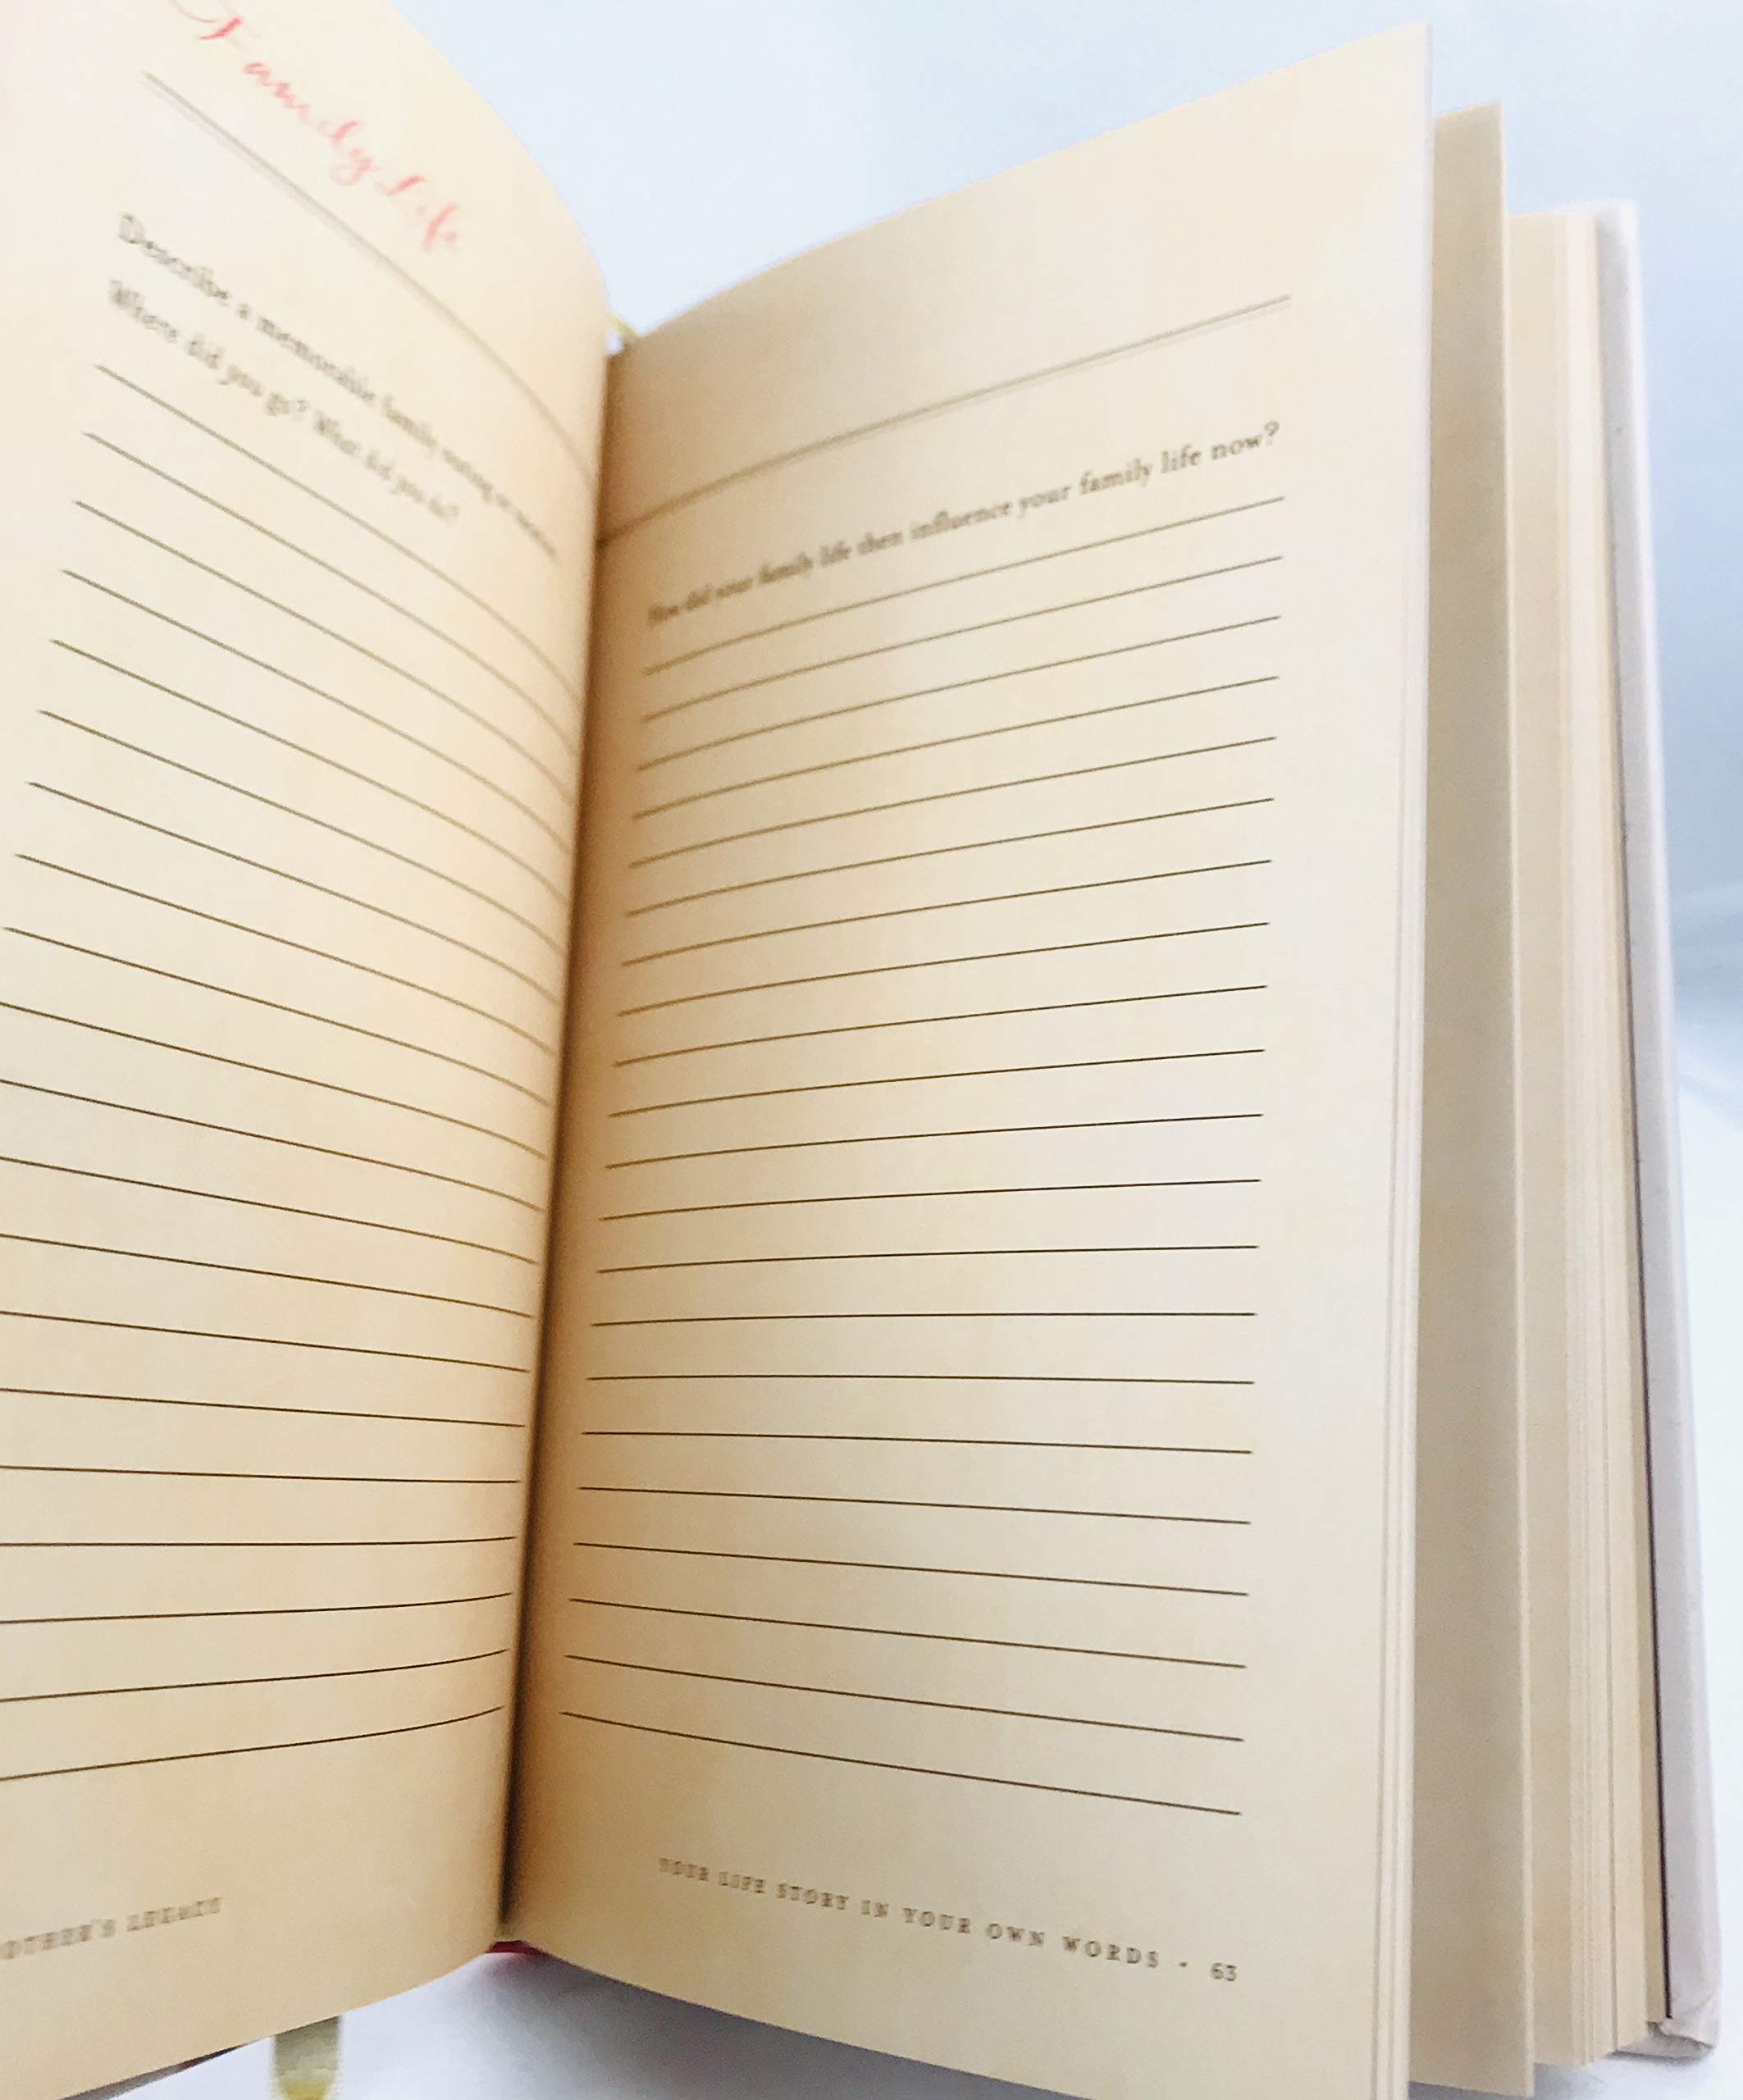 Family Life
Describe a memorable family outing or
Where did you go? What did you do?
OTHER'S LEGACY
How did your family life then influence your family life now?
YOUR LIFE STORY IN YOUR OWN WORDS • 63